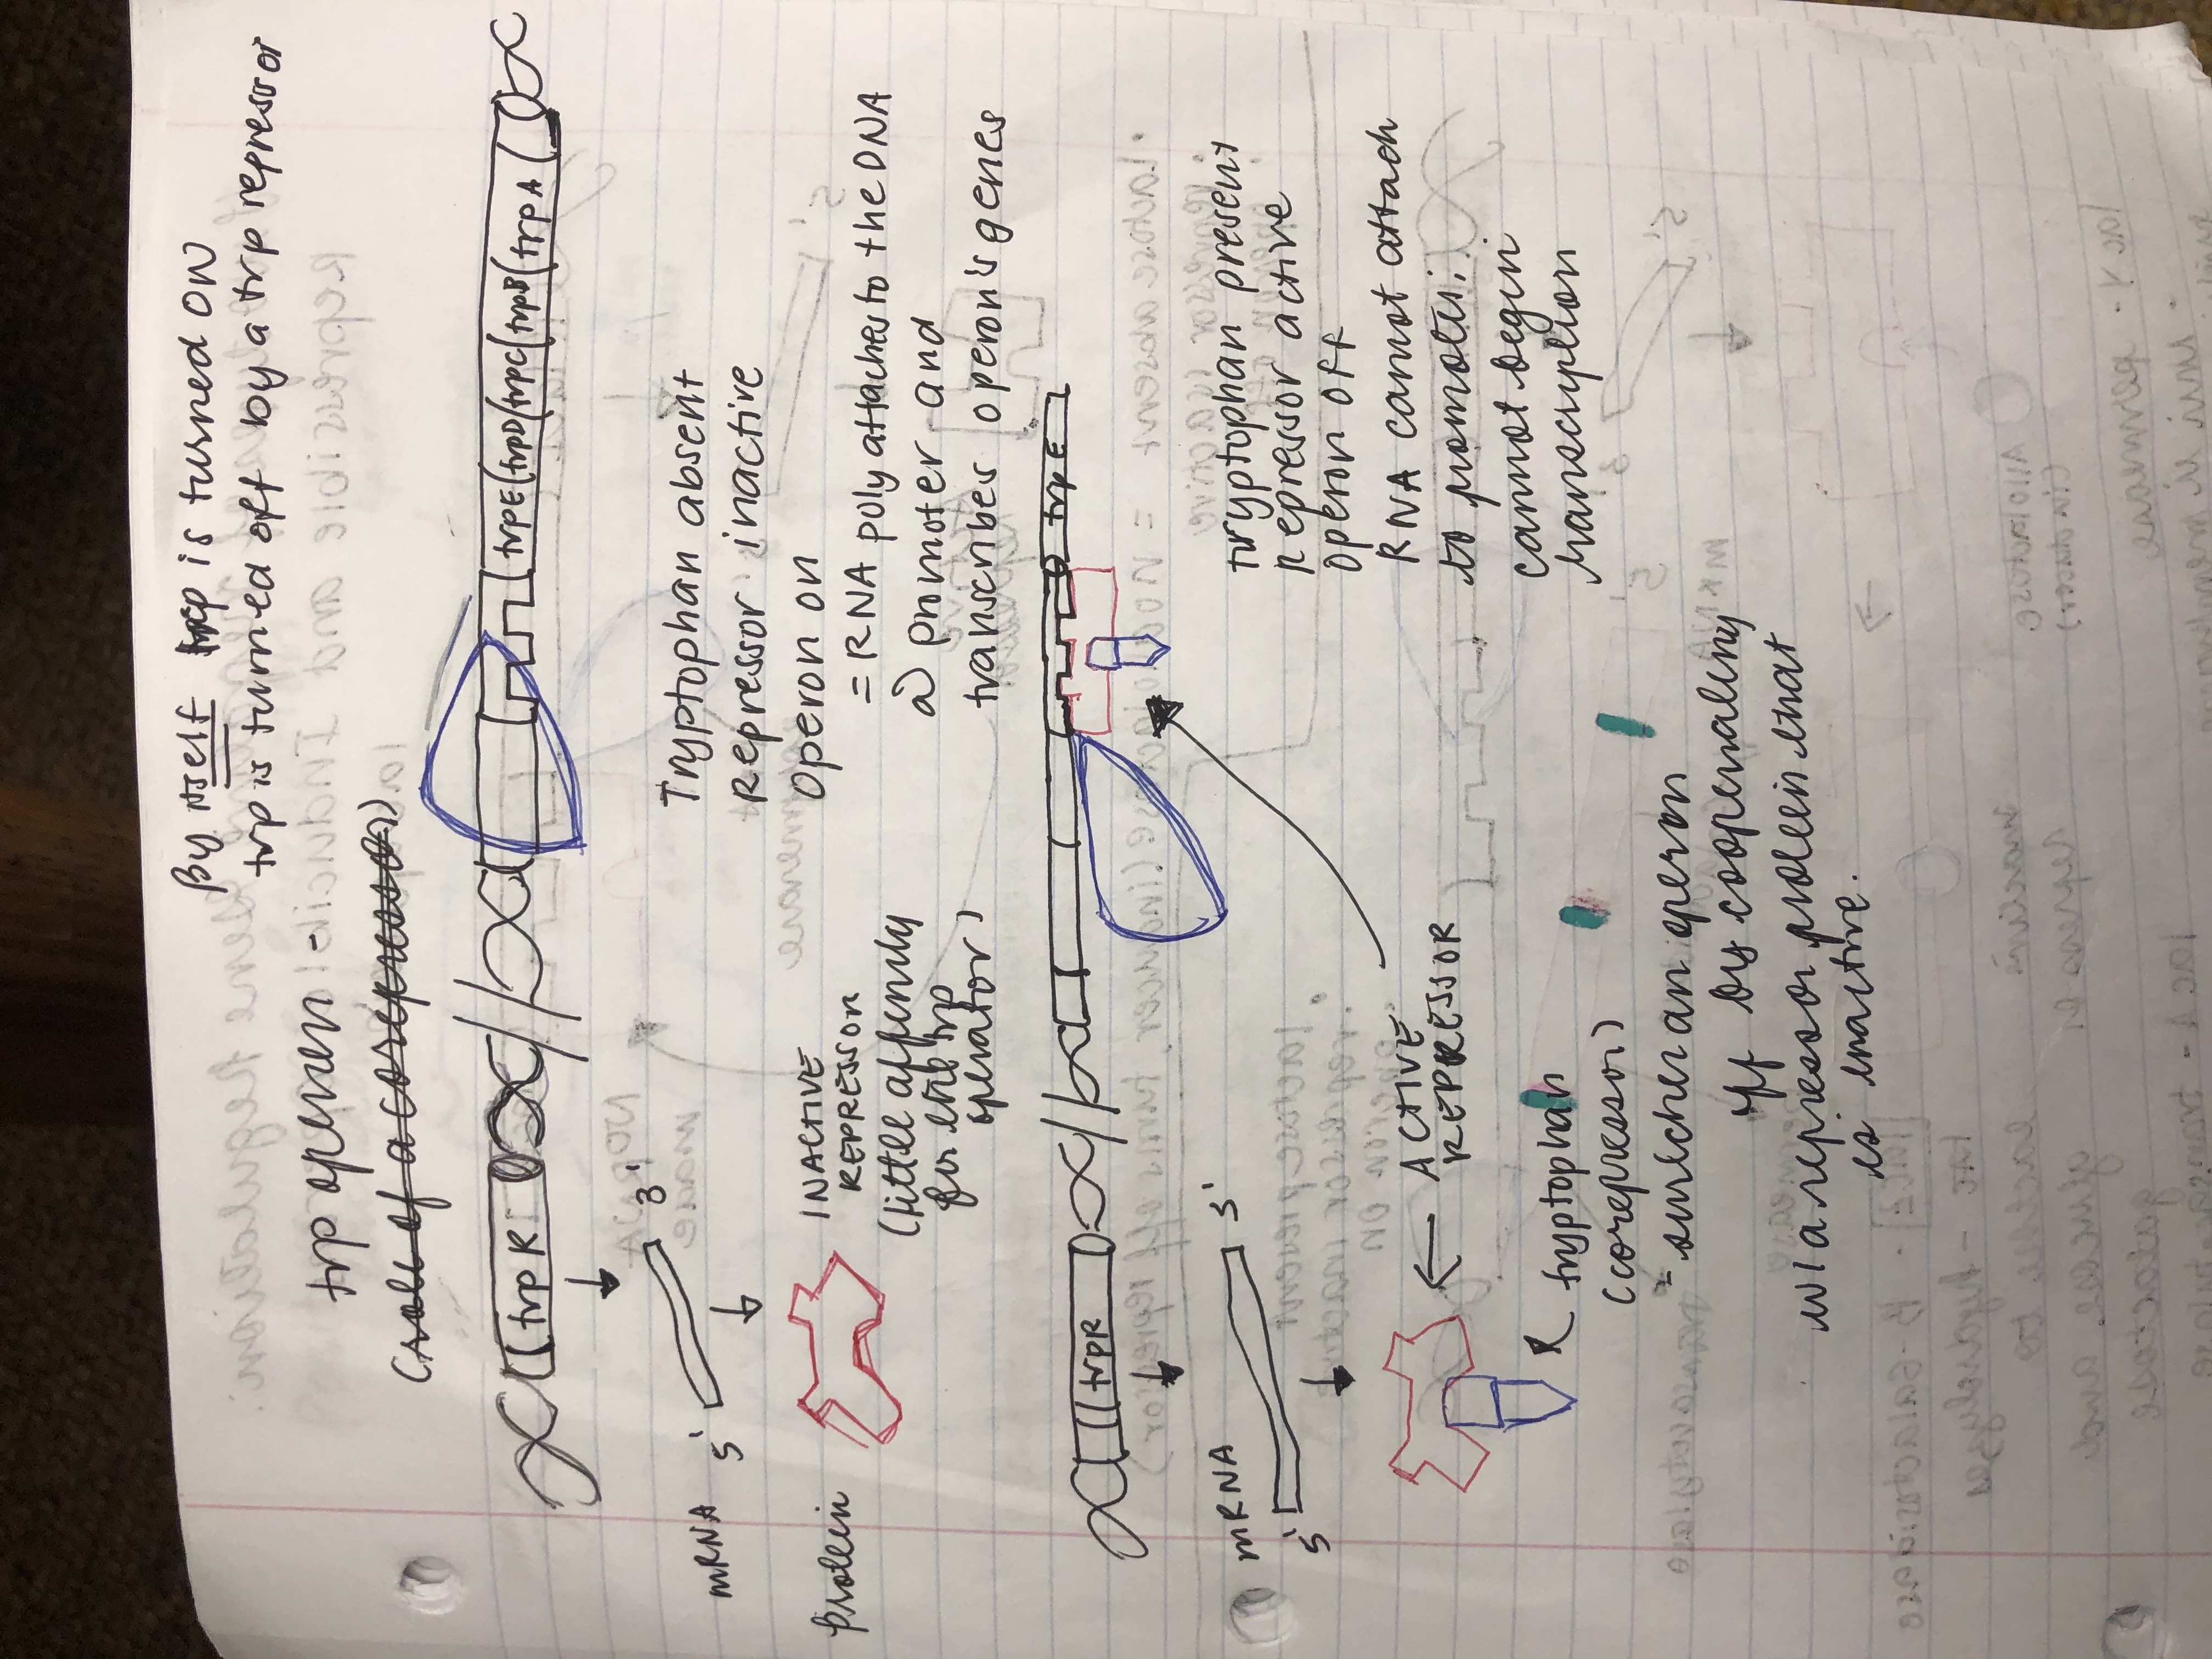 By itself trp is turned ON
trp is turned off by a trp repressor
trp operon -
trpR
trpE trpD trpC trpB trpA
mRNA 5' 3'
Protein
INACTIVE
REPRESSOR
(little affenity
for trp
operator)
Tryptophan absent
Repressor inactive
operon on
= RNA poly attaches to the DNA
@ promoter and
transcribes operon's genes
trpR
trpE
mRNA
5' 3'
← ACTIVE
REPRESSOR
tryptophan
(corepressor)
= switches an operon
off by cooperating
w/ a repressor protein that
is inactive.
tryptophan present
repressor active
operon off
RNA cannot attach
to promoter;
cannot begin
transcription